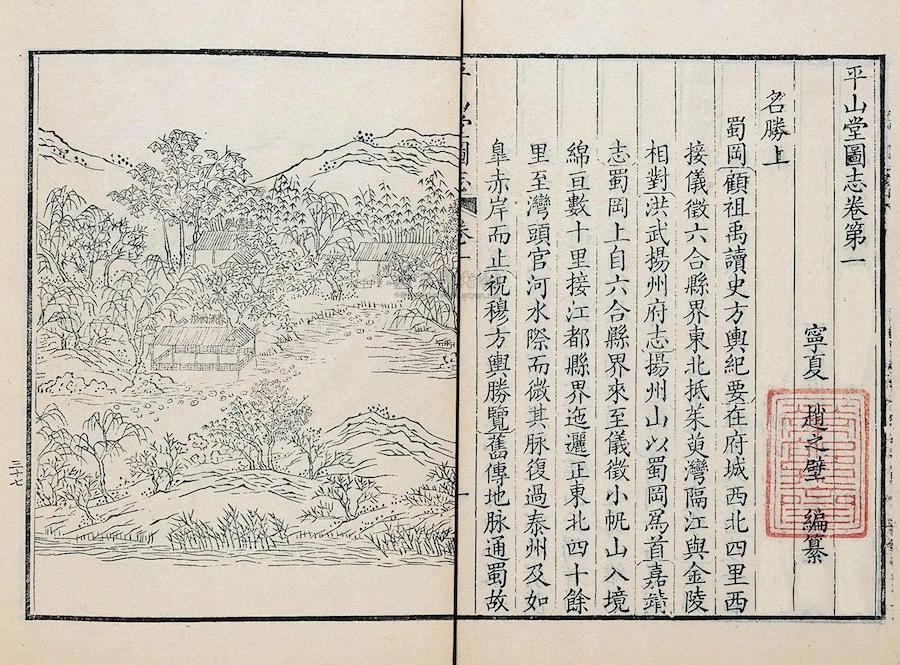 平山堂圖志卷第一
寧夏 趙之璧 編纂
名勝上
蜀岡顧祖禹讀史方輿紀要在府城西北四里西
接儀徵六合縣界東北抵茱萸灣隔江與金陵
相對洪武揚州府志揚州山以蜀岡爲首嘉靖
志蜀岡上自六合縣界來至儀徵小帆山入境
綿亘數十里接江都縣界迤邐正東北四十餘
里至灣頭官河水際而微其脉復過泰州及如
臯赤岸而止祝穆方輿勝覽舊傳地脉通蜀故
三十七